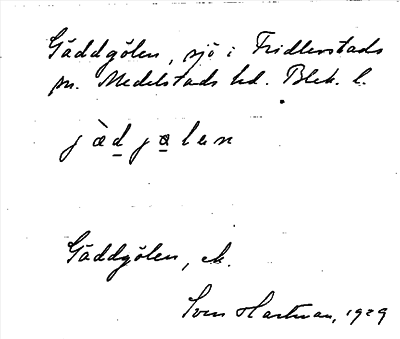 Gäddgölen, sjö i Fridlevstads
sn. Medelstads hd. Blek. l.
jæ̀d̲ jɞ̲lɐn
Gäddgölen, ek.
Sven Hartman, 1929